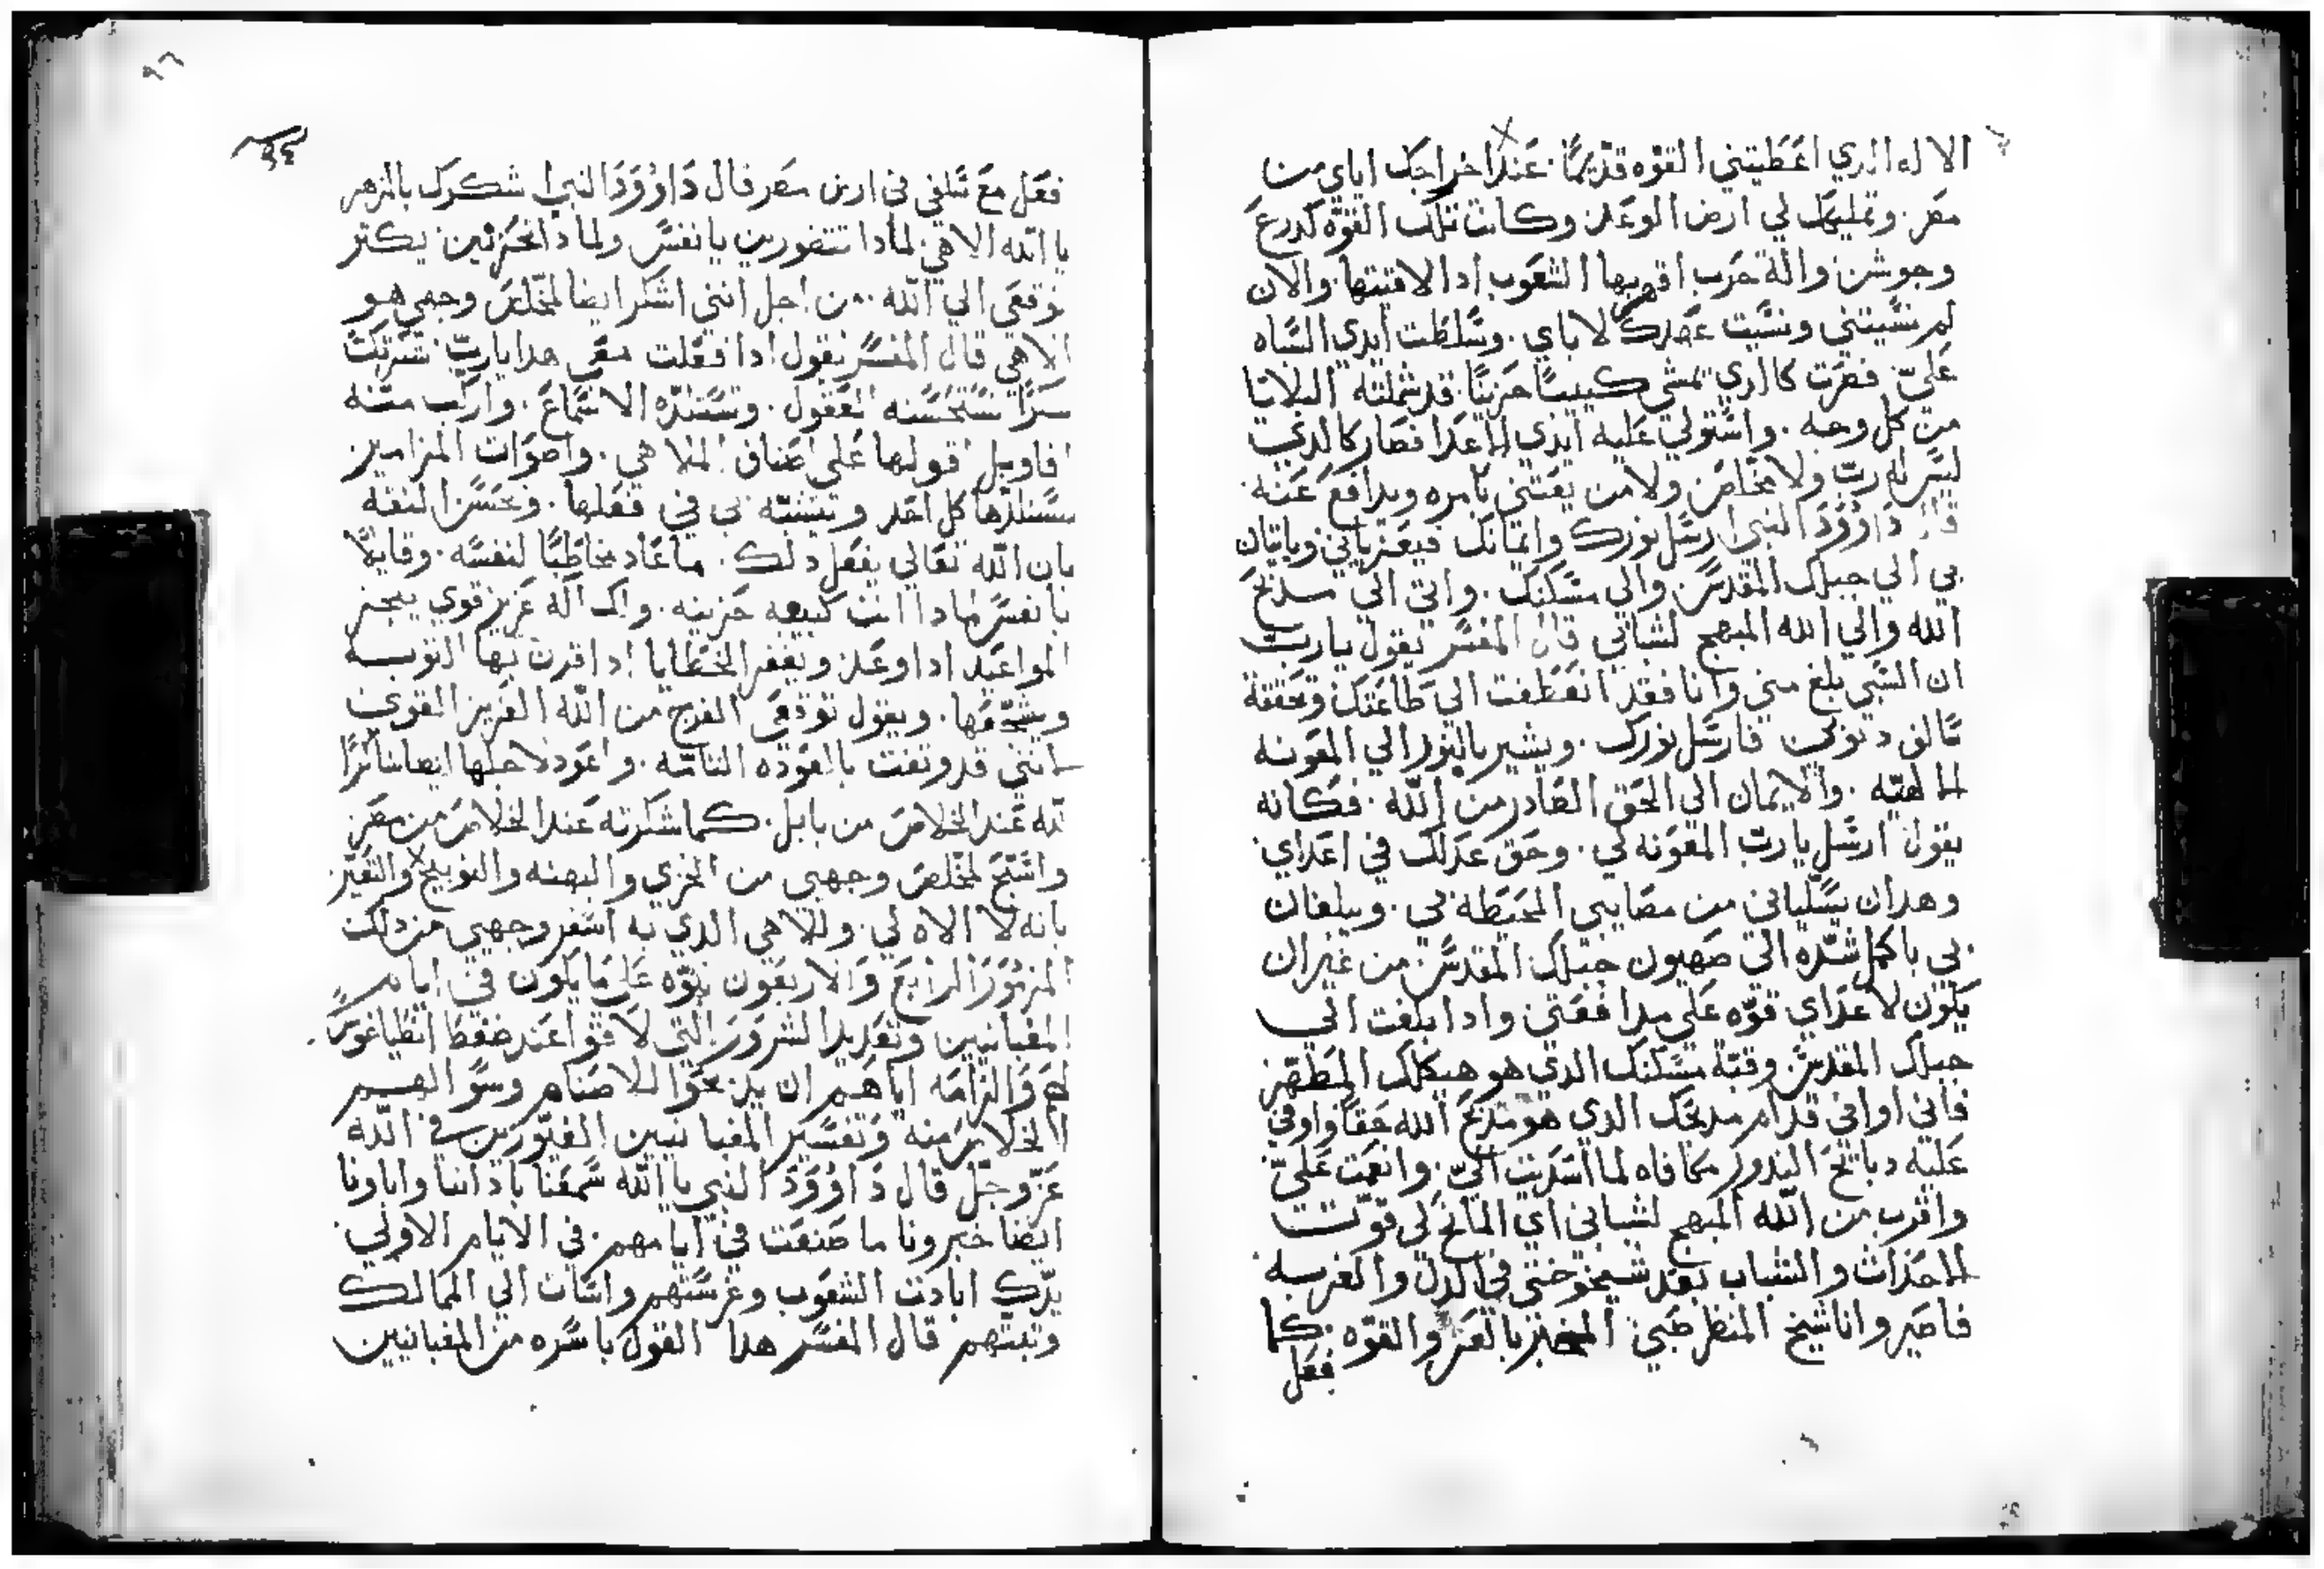 الاله الدي اعطيتني القوه قديمًا. عند اخراجك اياي من
مصر. وتمليكك لي ارض الوعد. وكانت تلك القوّه كدرع
وجوشن والة حرب اقهر بها الشعوب ادا لاقيتها. والان
لم نسيتني ونسيت عهدك لاباي. وسلطت ايدي السباه
عليّ. فصرت كالدي يمشي كييبًا حزينًا قد شملته البلايا
من كل وجه. واستولي عليه ايدي الاعدا فصار كالدي
ليس له ربّ ولا مخلص ولا من يعتني بامره ويدافع عنه.
قال داوود النبي ارسل نورك وايمانك فيعزياني وياتيان
بي الي جبلك المقدس والي مسكنك. واتي الي مدبح
الله والي الله المبهج لشبابي قال المفسر يقول يا ربّ
ان السبي بلغ مني وانا فقد انعطفت الي طاعتك
سالف دنوبي فارسل نورك. ويشير بالنور الي المعونه
الالهيّه. والايمان الي الحق الصادر من الله. فكانه
يقول ارسل يا ربّ المعونه لي. وحق عدلك في اعداي
وهدان يسلياني من مصايبي المحيطه بي. ويبلغان
بي باكمل مسّره الي صهيون جبلك المقدس من غير ان
يكون لاعداي قوّه علي مدافعتي وادا بلغت الي
جبلك المقدس وقبّة مسكنك الدي هو هيكلك المطهر
فاني اوافي قدام مدبحك الدي هو مدبح الله حقًا واوفي
عليه دبايح الندور مكافاه لما اسديت اليّ. وانعمت عليّ
واقرب من الله المبهج لشبابي اي المانح لي قوّت
الاحداث والشباب بعد شيخوختي في الدل والغربه.
فاصير وانا شيخ المنظر صبي المخبر بالعز والقوّه. كما
فعل
٩٦
فعل مع سلفي في ارض مصر قال داوود النبي اشكرك بالمزهر
يا الله الاهي. لمادا تتضورين يا نفس ولمادا تحزنين يكتر
توقعي الي الله. من اجل انني اشكر ايضا لمخلص وجهي هو
الاهي قال المفسر يقول ادا فعلت معي هدا يا ربّ شكرتك
شكرًا تستحسنه العقول. وتستلدّه الاسماع. واركب متنه
اقاويل اقولها علي اصناف الملاهي. واصوات المزامير
يستلدّها كل احد ويتشبّه بي في فعلها. وبحسن الثقه
بان الله تعالي يفعل دلك. ما عاد مخاطبًا لنفسه. وقايلاً
يا نفس لمادا انت كييبه حزينه. ولك اله عزيز قوي ينجز
المواعيد ادا وعد. ويغفر الخطايا ادا اقرن بها التوبه
ويقول توقعي الفرج من الله العزيز القوي
انني قد وثقت بالعوده التامّه. واعود لاجلها ايضا شاكرًا
لله عند الخلاص من بابل. كما شكرته عند الخلاص من مصر
واسبح لمخلص وجهي من الخزي والبهته والتوبيخ والتعيّر
بانه لا الاه لي. وللاهي الدي به اسفر وجهي من دلك
المزمور الرابع والاربعون نبوّه علي ما يكون في ايام
المقبانيين وتعديد الشرور التي لاقوا عند ضغط انطياغوس
لهم والزامه اياهم ان يدبحوا للاصنام وسوالهم
الخلاص منه وتفسير المقبانيين الغيّورين في الله
عزّ وجلّ قال داوود النبي يا الله سمعنا باداننا واباونا
ايضا خبرونا ما صنعت في ايامهم. في الايام الاولي
يدّك ابادت الشعوب وغرستهم واسات الي الممالك
وتبتّهم قال المفسر هدا القول باسره من المقبانيين